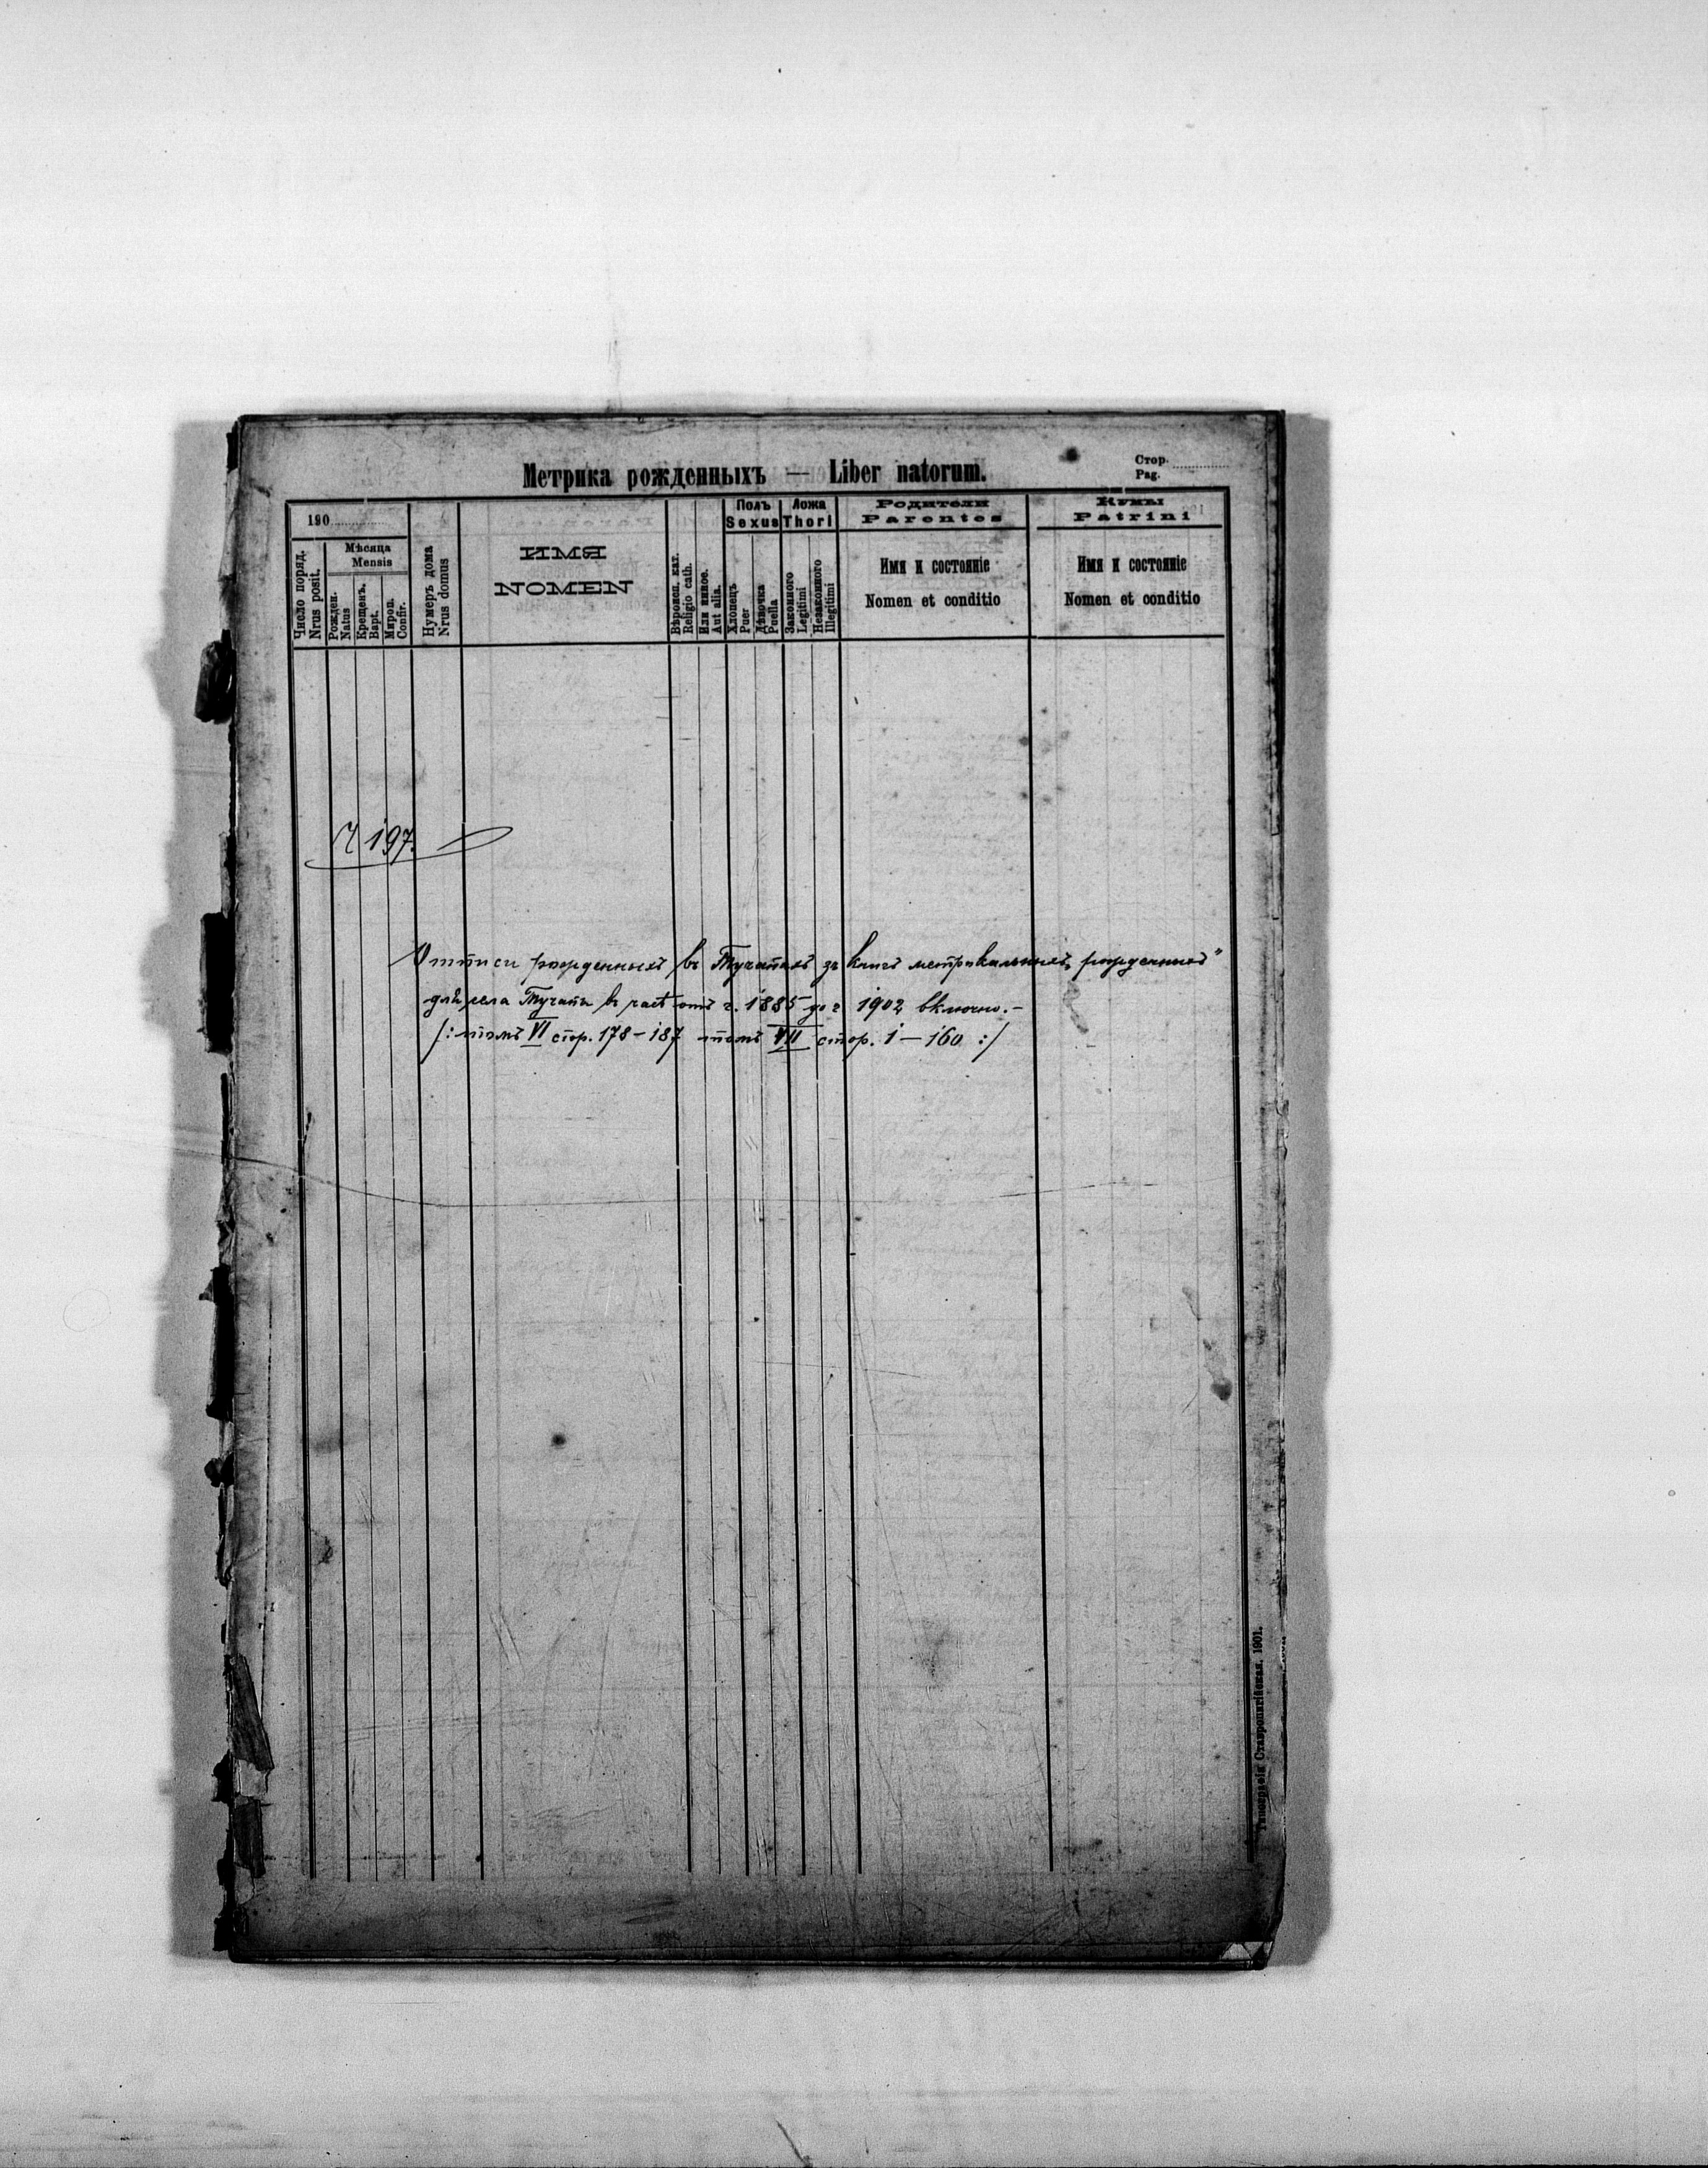 Метрика рожденныхъ — Liber natorum.
Стор.
Pag.
190
Число поряд.
Nrus posit.
Мѣсяца
Mensis
Рожден.
Natus
Крещенъ.
Bapt.
Миров.
Confir.
Нумеръ дома
Nrus domus
ИМЯ
NOMEN
Вѣроисп. кат.
Religio cath.
Или иное.
Aut alia.
Полъ
Sexus
Хлопецъ
Puer
Дѣвочка
Puella
Ложа
Thori
Законного
Legitimi
Незаконного
Illegitimi
Родители
Parentes
Имя и состояніе
Nomen et conditio
Кумы
Patrini
Имя и состояніе
Nomen et conditio
Ч 197.
Отписи рожденныхъ въ Тучапахъ зъ книгъ метрикальныхъ „рожденныхъ"
для села Тучапы въ часѣ отъ г. 1885 до г. 1902 включно.-
/: томъ VI стор. 178-187 томъ VII стор. 1 — 160 :/
Типографія Ставропигійская. 1901.